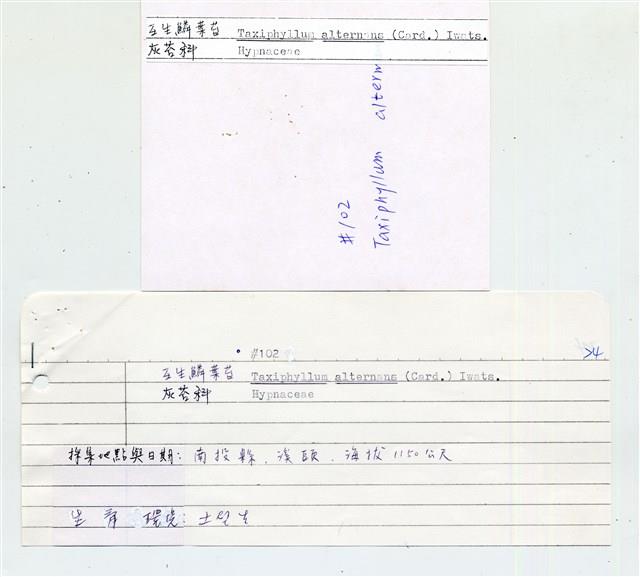 互生鱗葉苔 Taxiphyllum alternans (Card.) Iwats.
灰苔科 Hypnaceae
#102
Taxiphyllum altern
#102
74
互生鱗葉苔 Taxiphyllum alternans (Card.) Iwats.
灰苔科 Hypnaceae
採集地點與日期: 南投縣、溪頭、海拔1150公尺
生育環境: 土生